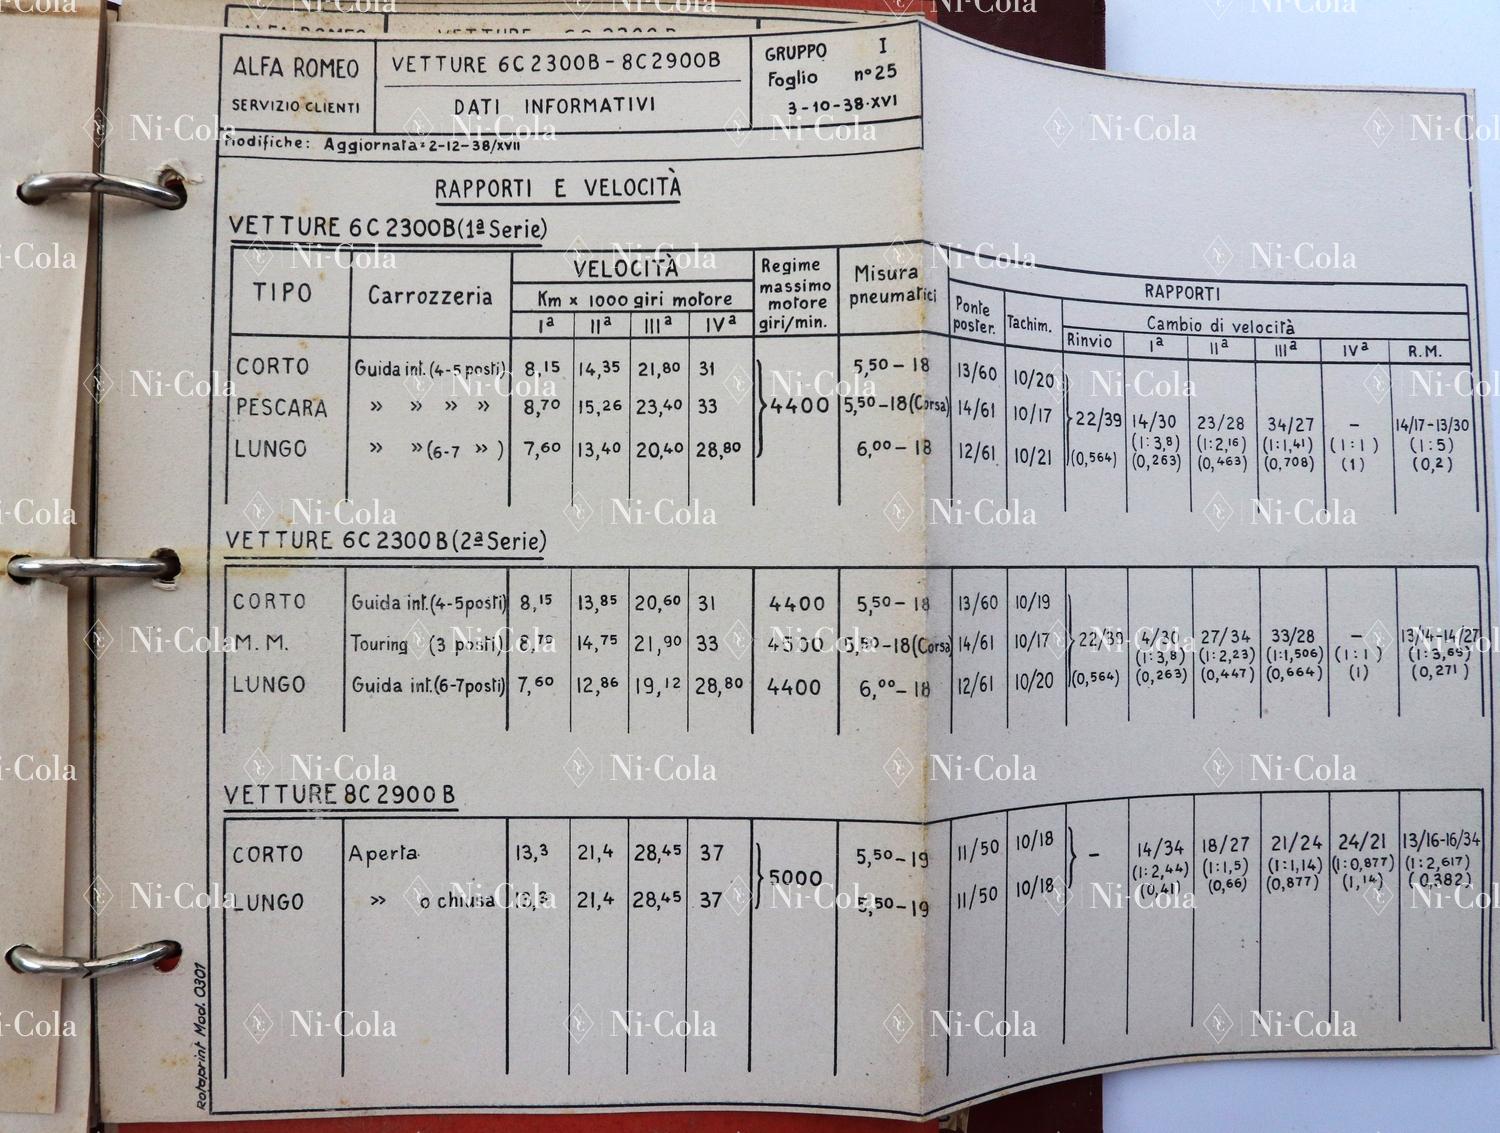 ALFA ROMEO
SERVIZIO CLIENTI
VETTURE 6C2300B-8C2900B
DATI INFORMATIVI
GRUPPO I
Foglio n°25
3-10-38-XVI
Modifiche: Aggiornata: 2-12-38/XVII
RAPPORTI E VELOCITÀ
VETTURE 6C2300B (1ª Serie)
TIPO Carrozzeria VELOCITÀ Regime massimo motore giri/min. Misura pneumatici Ponte poster. Tachim. RAPPORTI
Km x 1000 giri motore Rinvio Cambio di velocità
Iª IIª IIIª IVª Iª IIª IIIª IVª R.M.
CORTO Guida int. (4-5 posti) 8,15 14,35 21,80 31 5,50-18 13/60 10/20
PESCARA » » » » 8,70 15,26 23,40 33 4400 5,50-18(Corsa) 14/61 10/17 22/39 14/30 23/28 34/27 – 14/17-13/30
(1:3,8) (1:2,16) (1:1,41) (1:1) (1:5)
LUNGO » » (6-7 » ) 7,60 13,40 20,40 28,80 6,00-18 12/61 10/21 (0,564) (0,263) (0,463) (0,708) (1) (0,2)
VETTURE 6C2300B (2ª Serie)
CORTO Guida int. (4-5 posti) 8,15 13,85 20,60 31 4400 5,50-18 13/60 10/19
M.M. Touring (3 posti) 8,70 14,75 21,90 33 4500 5,50-18(Corsa) 14/61 10/17 22/39 14/30 27/34 33/28 – 13/14-14/27
(1:3,8) (1:2,23) (1:1,506) (1:1) (1:3,69)
LUNGO Guida int. (6-7 posti) 7,60 12,86 19,12 28,80 4400 6,00-18 12/61 10/20 (0,564) (0,263) (0,447) (0,664) (1) (0,271)
VETTURE 8C2900B
CORTO Aperta 13,3 21,4 28,45 37 5000 5,50-19 11/50 10/18 – 14/34 18/27 21/24 24/21 13/16-16/34
(1:2,44) (1:1,5) (1:1,14) (1:0,877) (1:2,617)
(0,41) (0,66) (0,877) (1,14) (0,382)
LUNGO » o chiusa 13,3 21,4 28,45 37 5,50-19 11/50 10/18
Rotaprint Mod. 0301
Ni-Cola